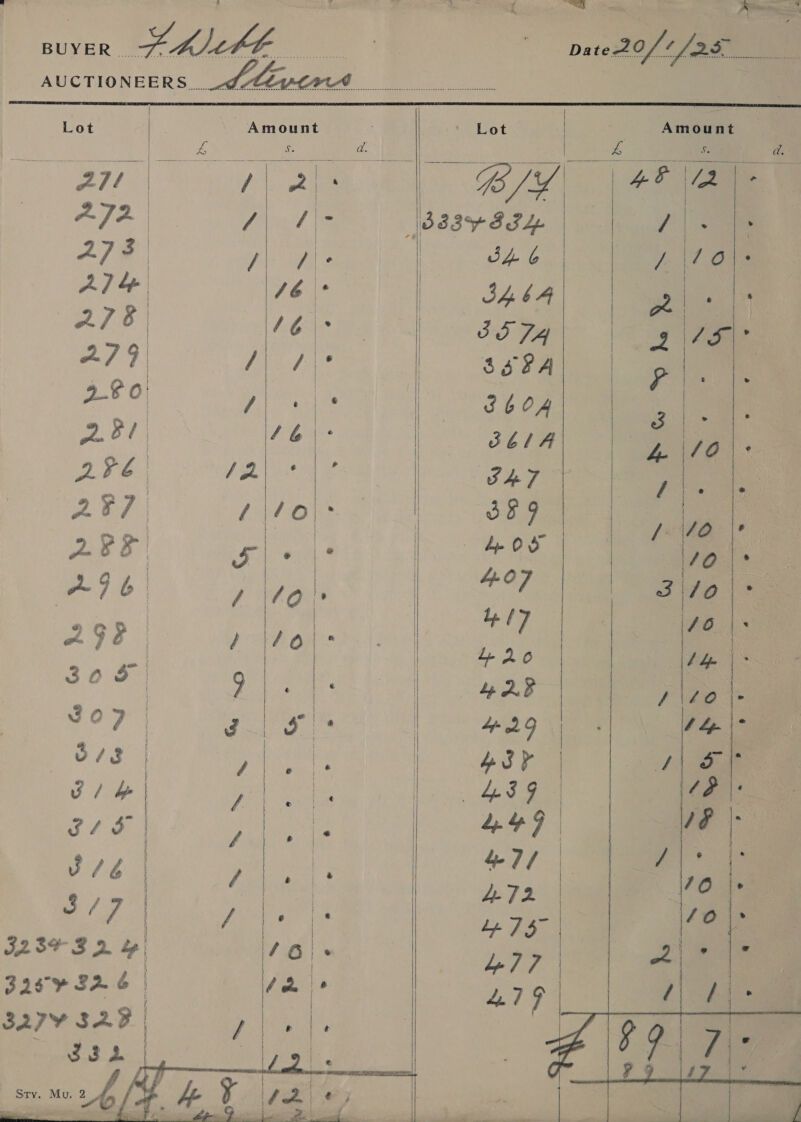 BUYER F. Webb Date 20/1/25
AUCTIONEERS Stevens
Lot Amount
£ s. d.
271 1 2 -
272 1 1 -
273 1 1 -
274 16 -
278 16 -
279 1 1 -
280 1 - -
281 16 -
286 12 - -
287 1 10 -
288 5 - -
296 1 10 -
298 1 10 -
305 9 - -
307 3 5 -
313 1 - -
314 1 - -
315 1 - -
316 1 - -
317 1 - -
323 + 324 10 -
325 + 326 12 -
327 + 328 1 - -
332 12 -
Sty. Mu. 2 C/F. 48 12 -
49 2 -
Lot Amount
£ s. d.
B/F 48 12 -
333 + 334 1 - -
346 1 10 -
346A 2 - -
357A 2 15 -
358A 8 - -
360A 3 - -
361A 4 10 -
347 1 - -
389 1 10 -
405 10 -
407 3 10 -
417 10 -
420 14 -
428 1 10 -
429 14 -
438 1 5 -
439 18 -
449 18 -
471 1 - -
472 10 -
475 10 -
477 2 - -
479 1 1 -
£ 89 7 -
89 17 -